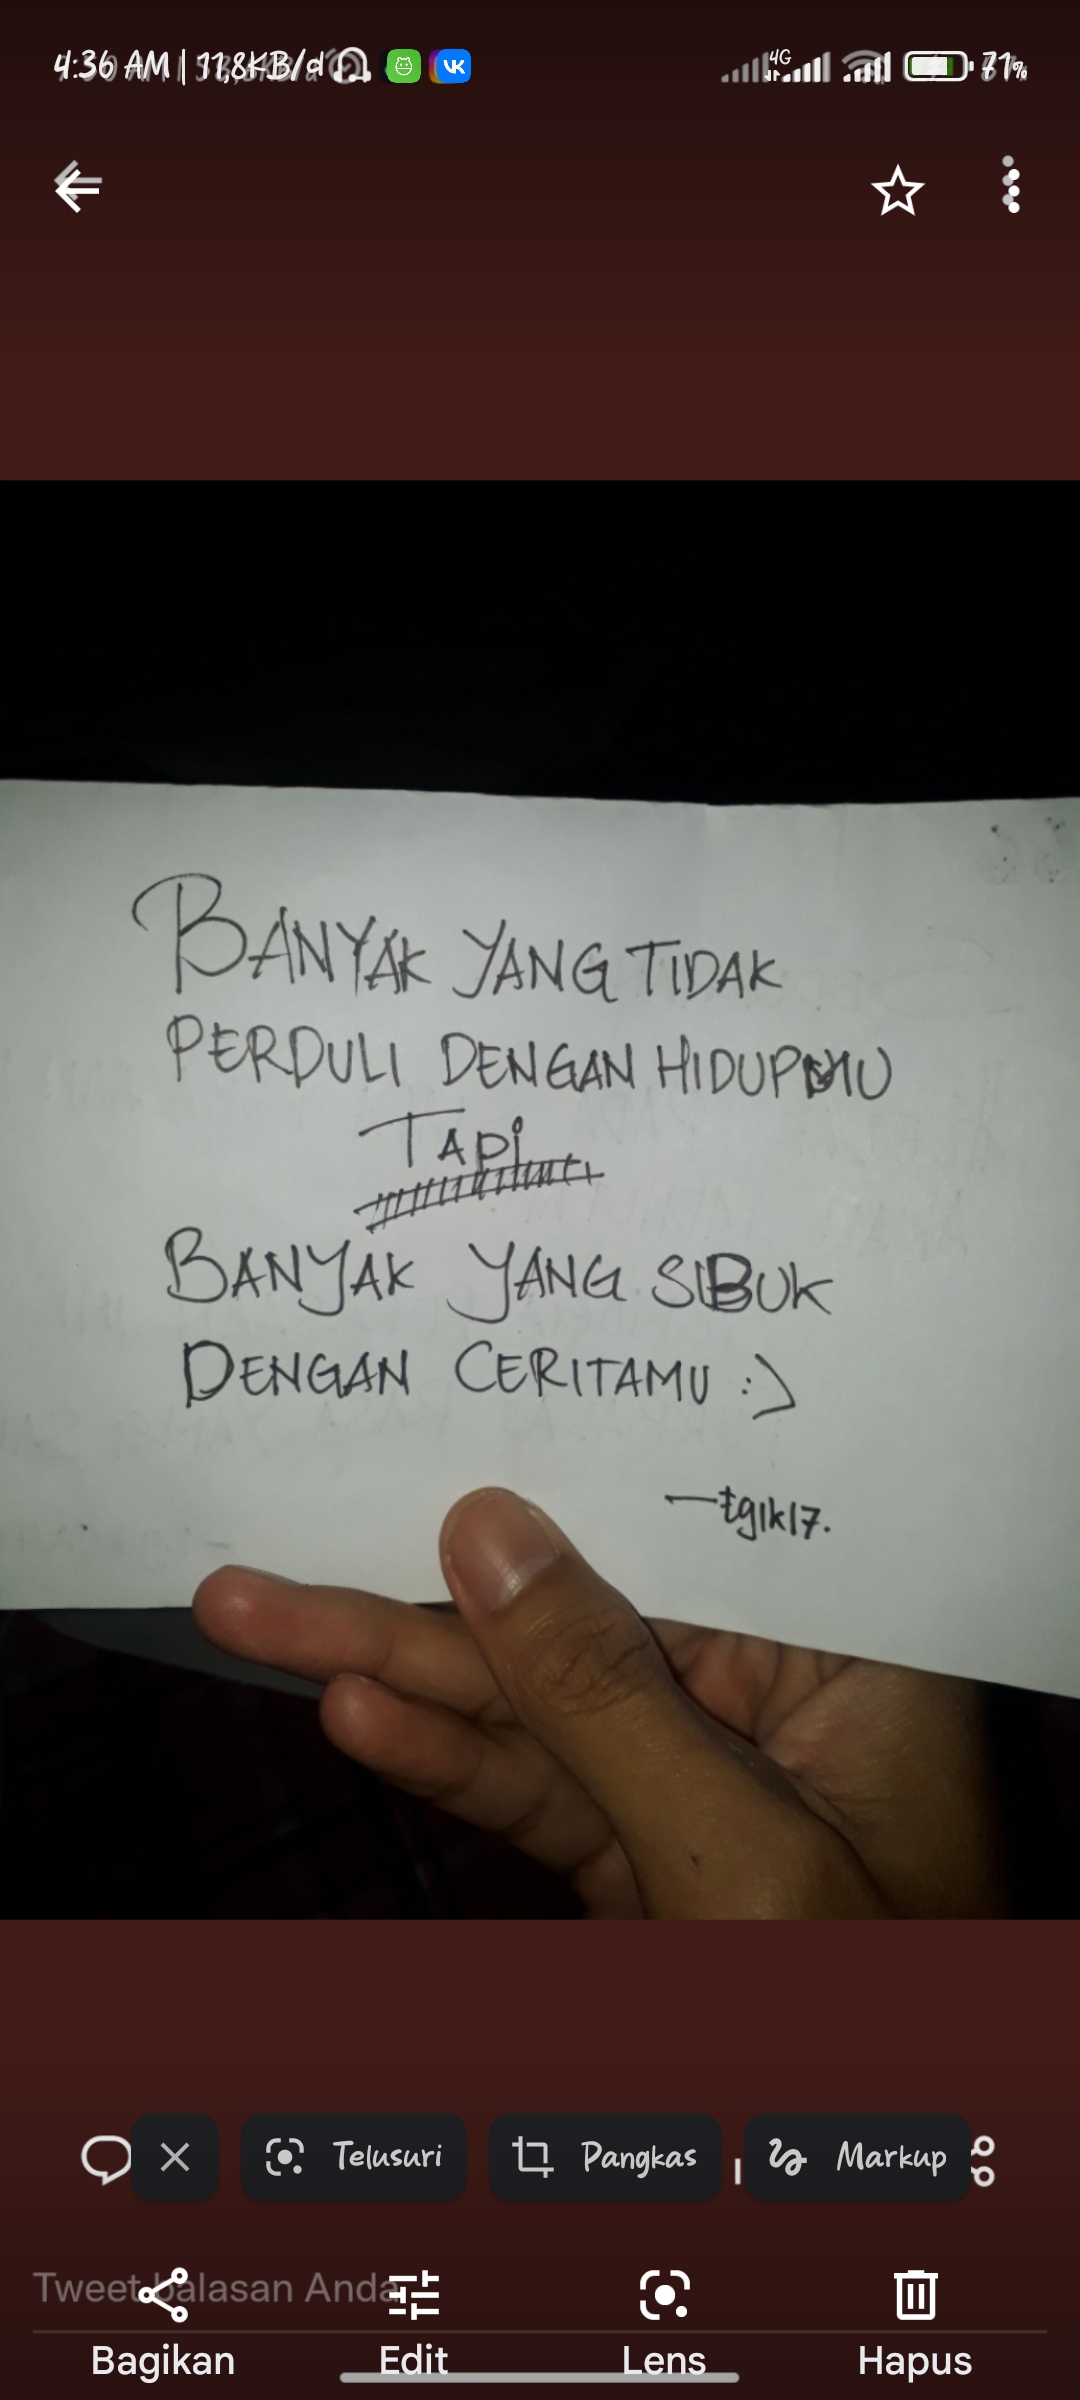 4:36 AM | 11,8KB/d
4G
71%
BANYAK YANG TIDAK
PERDULI DENGAN HIDUPMU
TAPi
BANYAK YANG SIBUK
DENGAN CERITAMU :)
—tgiki7.
Telusuri
Pangkas
Markup
Tweet balasan Anda
Bagikan
Edit
Lens
Hapus